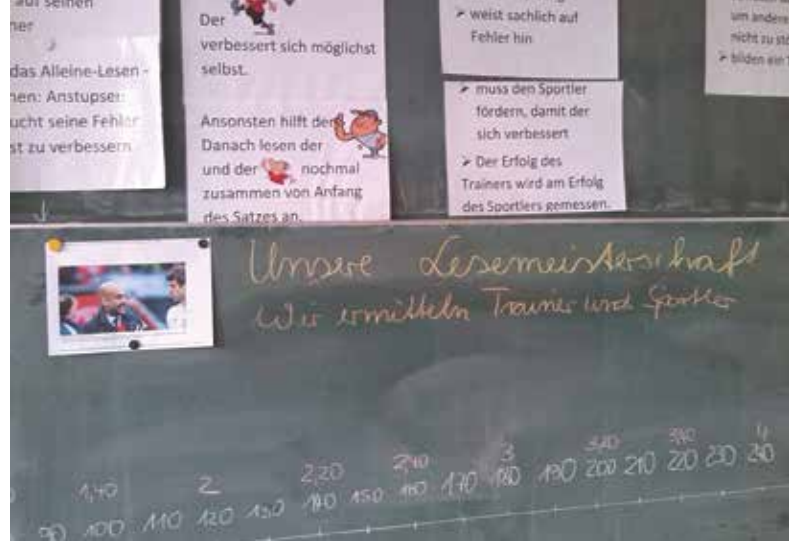 auf seinen
das Alleine-Lesen -
nen: Anstupser
ucht seine Fehler
st zu verbessern
Der
verbessert sich möglichst
selbst.
Ansonsten hilft der
Danach lesen der
und der nochmal
zusammen von Anfang
des Satzes an.
➢ weist sachlich auf
Fehler hin
➢ muss den Sportler
fördern, damit der
sich verbessert
➢ Der Erfolg des
Trainers wird am Erfolg
des Sportlers gemessen.
um andere
nicht zu stö
➢ bilden ein T
Unsere Lesemeisterschaft
Wir ermitteln Trainer und Sportler
1,40 2 2,20 2,40 3 3,20 3,40 4
90 100 110 120 130 140 150 160 170 180 190 200 210 220 230 240